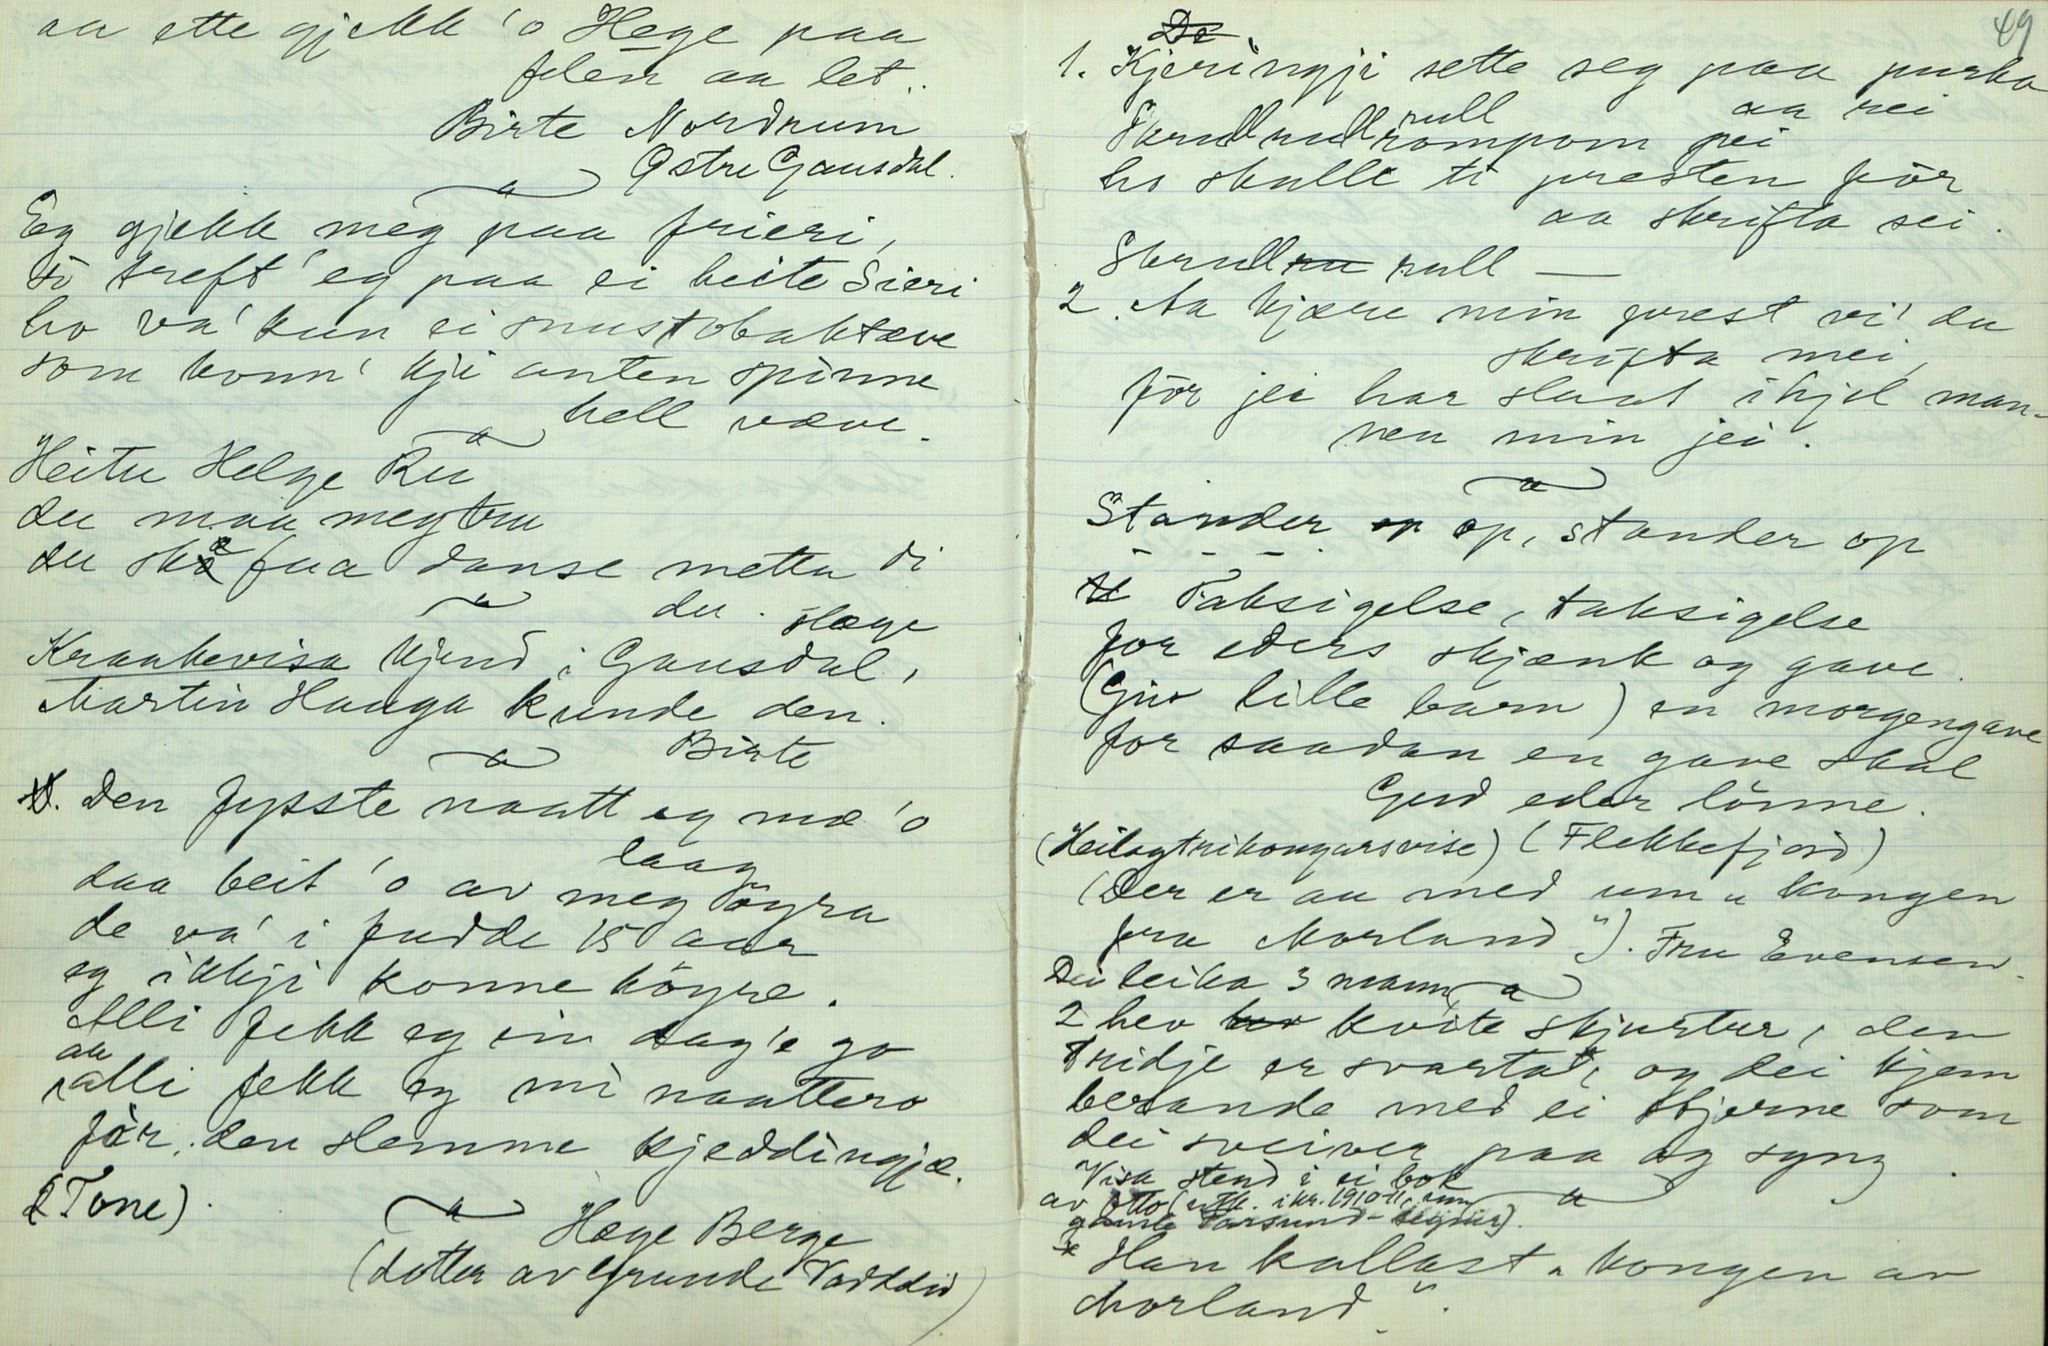 aa ette gjekk 'o Hege paa
felen aa let..
Birte Nordrum
Østre Gausdal.
Eg gjekk meg paa frieri,
so treft' eg paa ei heite Sieri
ho va' kun ei snustobaktæve
som konn' kji anten spinne
hell væve.
Heitu Helge Ru
du maa meg tru
du ska faa danse metta di
du. Hæge
Kraakevisa kjend i Gausdal,
Martin Hauga kunde den.
Birte
Den fysste naatt eg mæ 'o
laag
daa beit 'o av meg öyra
de va' i fudde 15 aar
eg ikkji konne höyre.
Alli fekk eg ein dag'e go
aa alli fekk eg mi naattero
för den slemme kjeddingjæ.
(Tone).
Hæge Berge
(dotter av Grunde Vaddli)
49
De
1. Kjeringji sette seg paa purka
aa rei
Skrull rull rull rompom pei
ho skulle te presten för
aa skrifta sei.
Skrull ru rull —
2. Aa kjære min prest vi' du
skrifta mei,
för jei har slaat ihjel man-
nen min jei.
Stander op op, stander op
- - - -
Taksigelse, taksigelse
for eders skjænk og gave.
(Giv lille barn) en morgengave
for saadan en gave skal
Gud eder lönne.
(Heilagtrikongarsvise) (Flekkefjord)
(Der er au med um „kongen
fra Morland"). Fru Evensen.
Dei leika 3 mann,
2 hev hev kvite skjurtur, den
tridje er svarta*, og dei kjem
berande med ei stjerne som
dei sveiver paa og syng.
Visa stend i ei bok
av Otto ( i kr. 1910-11, um
gamle Farsund-
* Han kallast „kongen av
Morland".